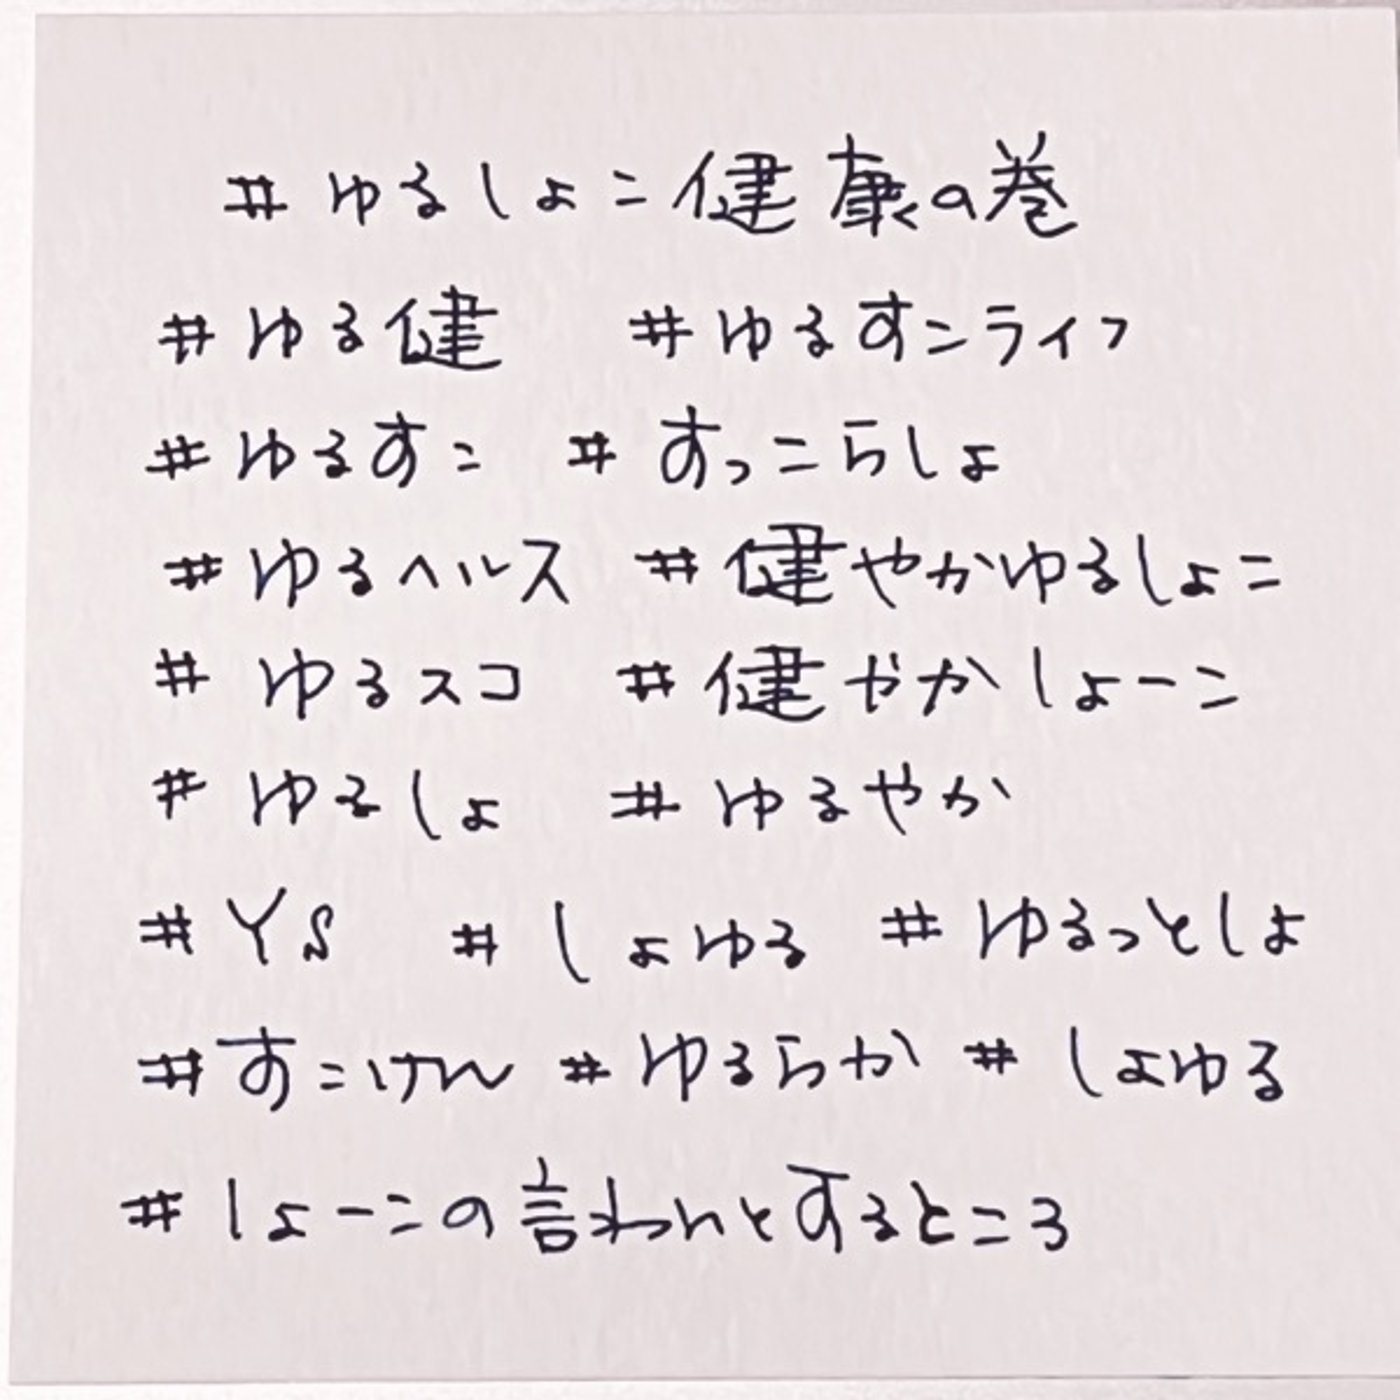 #ゆるしょこ健康の巻
#ゆる健 #ゆるすこライフ
#ゆるすこ #すっこらしょ
#ゆるヘルス #健やかゆるしょこ
#ゆるスコ #健やかしょーこ
#ゆるしょ #ゆるやか
#YS #しょゆる #ゆるっとしょ
#すこけん #ゆるらか #しょゆる
#しょーこの言わんとするところ